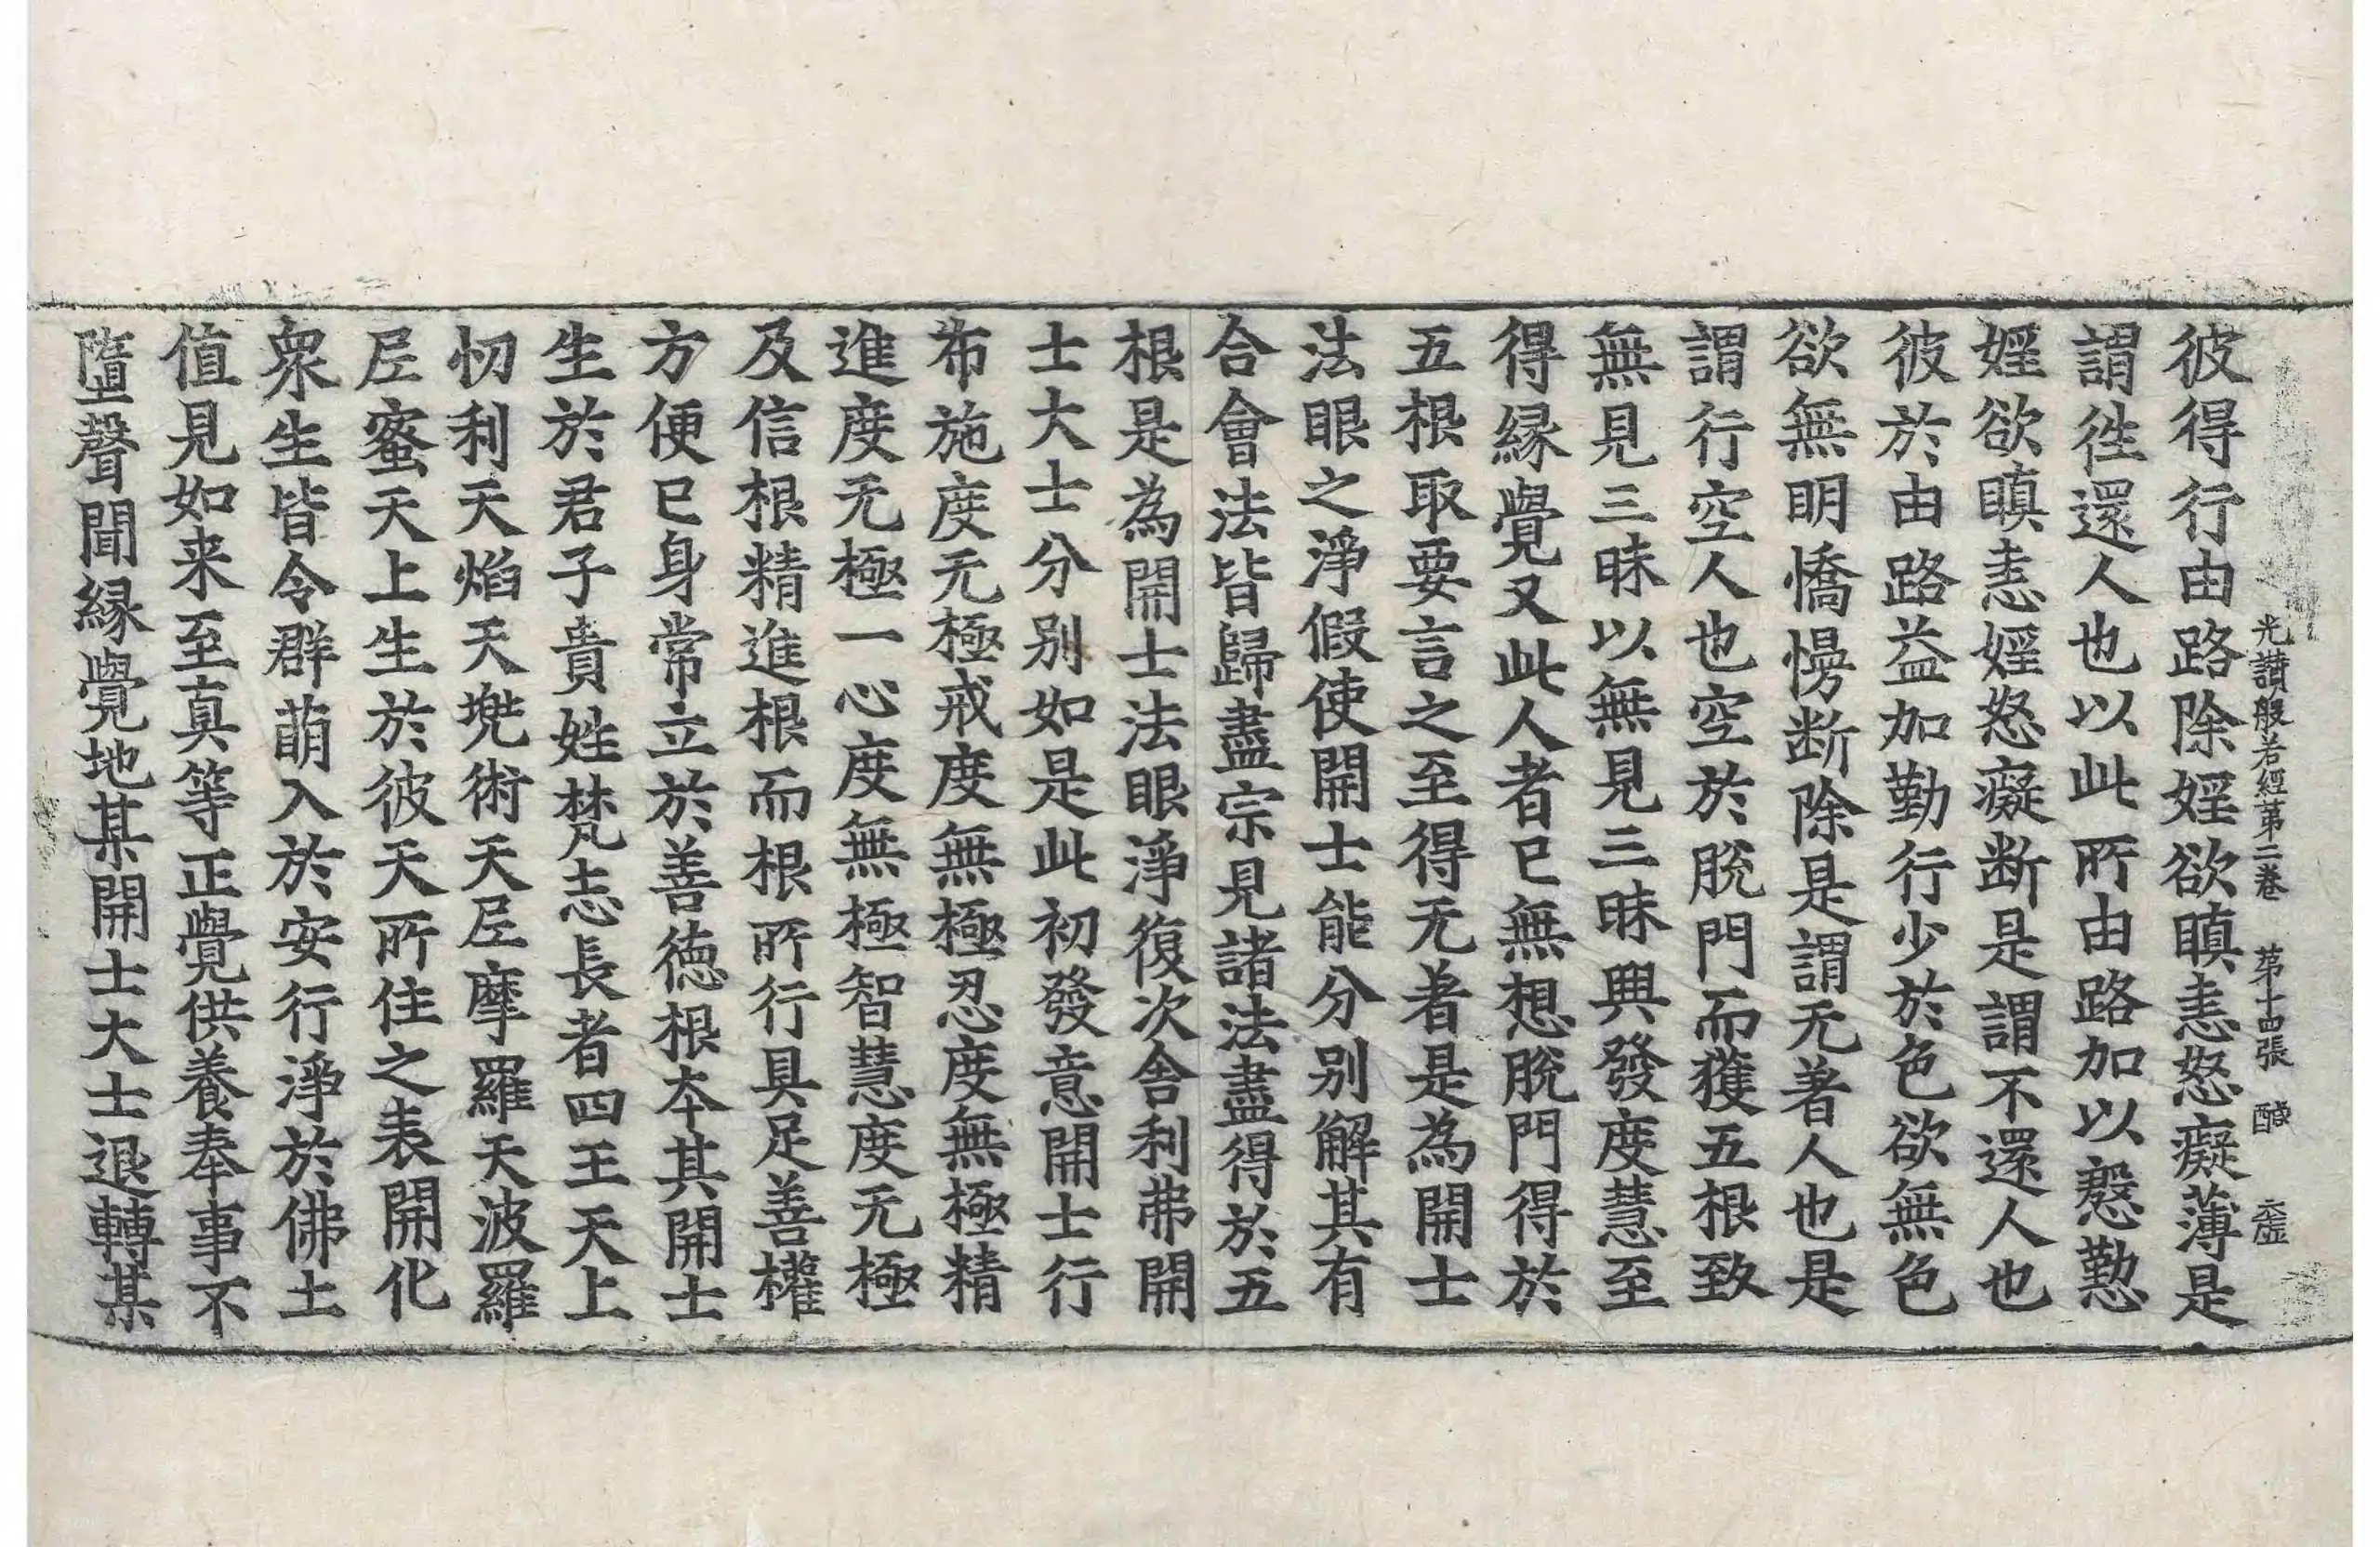 光讃般若經苐二卷　苐十四張　醎　𠁅
彼得行由路除婬欲瞋恚怒癡薄是
謂徃還人也以此所由路加以慇懃
婬欲瞋恚婬怒癡断是謂不還人也
彼於由路益加勤行少於色欲無色
欲無明憍慢断除是謂无著人也是
謂行空人也空於脫門而獲五根致
無見三昧以無見三昧興發度慧至
得縁覺又此人者已無想脫門得於
五根取要言之至得无著是為開士
法眼之淨假使開士能分别解其有
合會法皆歸盡宗見諸法盡得於五
根是為開士法眼淨復次舎利弗開
士大士分别如是此初發意開士行
布施度无極戒度無極忍度無極精
進度无極一心度無極智慧度无極
及信根精進根而根所行具足善權
方便已身常立於善德根夲其開士
生於君子貴姓梵志長者四王天上
忉利天焰天兠術天尼摩羅天波羅
尼蜜天上生於彼天所住之表開化
衆生皆令群萌入於安行淨於佛土
值見如来至真等正覺供養奉事不
墮聲聞縁覺地某開士大士退轉某